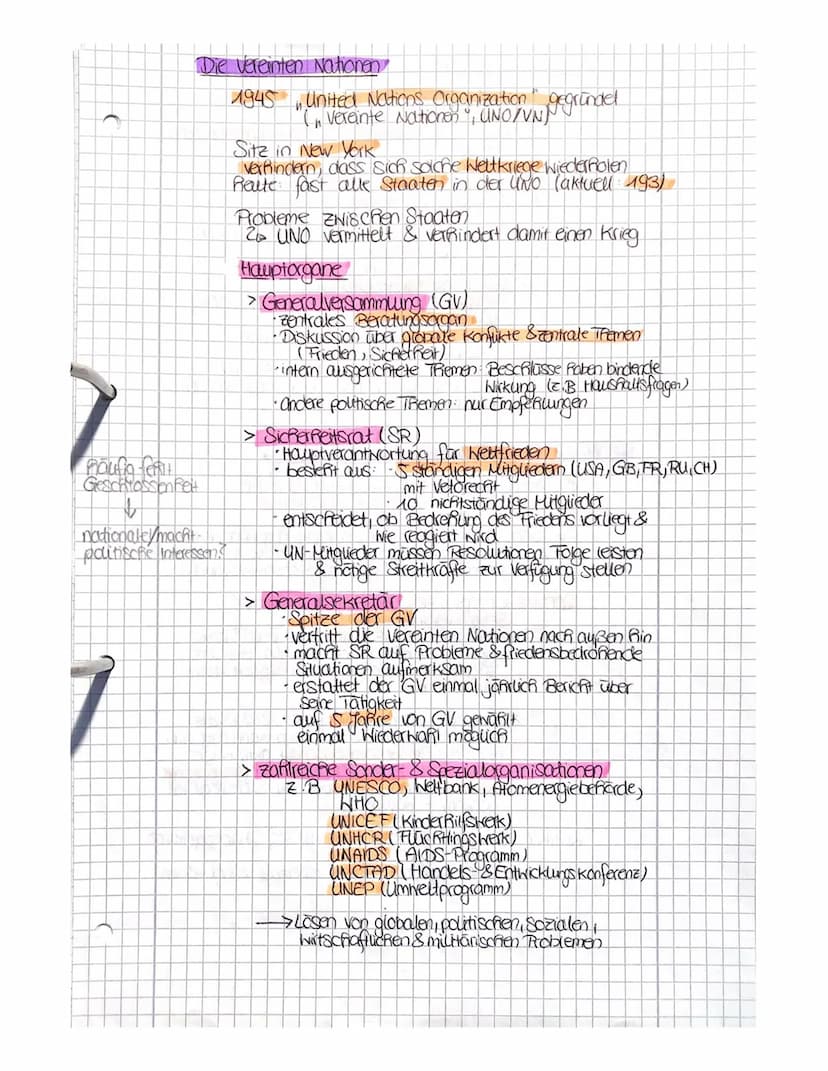 Die Vereinten Nationen
1945 „United Nations Organization" gegründet
(„Vereinte Nationen", UNO/VN)
Sitz in New York
verhindern, dass sich solche Weltkriege wiederholen
heute: fast alle Staaten in der UNO (aktuell 193)
Probleme zwischen Staaten
↳ UNO vermittelt & verhindert damit einen Krieg
Hauptorgane
> Generalversammlung (GV)
· zentrales Beratungsorgan
· Diskussion über globale Konflikte & zentrale Themen
(Frieden, Sicherheit)
· intern ausgerichtete Themen: Beschlüsse haben bindende
Wirkung (z.B Haushaltsfragen)
· andere politische Themen: nur Empfehlungen
> Sicherheitsrat (SR)
· Hauptverantwortung für Weltfrieden
· besteht aus: · 5 ständigen Mitgliedern (USA, GB, FR, RU, CH)
mit Vetorecht
· 10 nichtständige Mitglieder
- entscheidet, ob Bedrohung des Friedens vorliegt &
wie reagiert wird
· UN-Mitglieder müssen Resolutionen Folge leisten
& nötige Streitkräfte zur Verfügung stellen
häufig fehlt
Geschlossenheit
↓
nationale/macht-
politische Interessen?
> Generalsekretär
· Spitze der GV
· vertritt die Vereinten Nationen nach außen hin
· macht SR auf Probleme & friedensbedrohende
Situationen aufmerksam
· erstattet der GV einmal jährlich Bericht über
seine Tätigkeit
· auf 5 Jahre von GV gewählt
einmal Wiederwahl möglich
> zahlreiche Sonder- & Spezialorganisationen
z.B UNESCO, Weltbank, Atomenergiebehörde,
WHO
UNICEF (Kinderhilfswerk)
UNHCR (Flüchtlingswerk)
UNAIDS (AIDS-Programm)
UNCTAD (Handels- & Entwicklungskonferenz)
UNEP (Umweltprogramm)
→ Lösen von globalen, politischen, sozialen,
wirtschaftlichen & militärischen Problemen